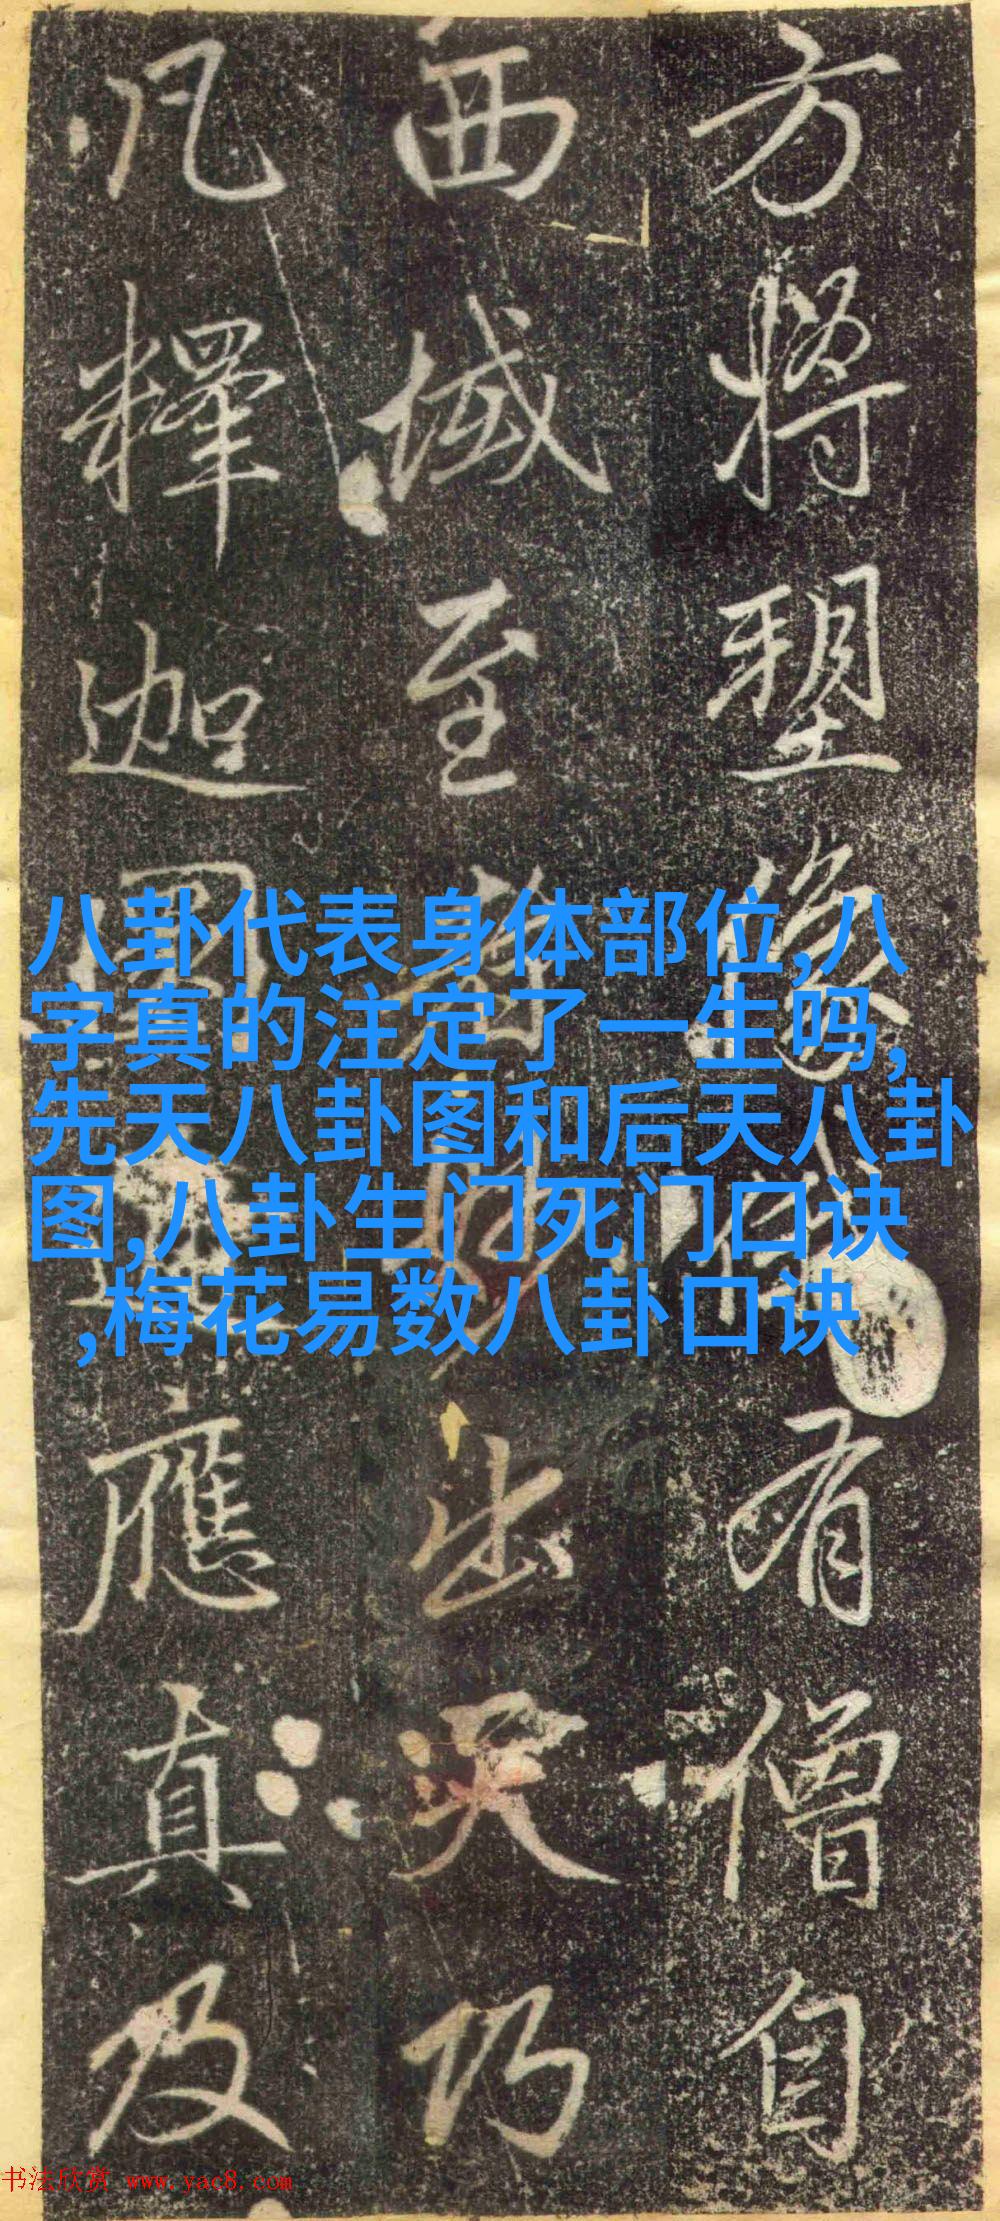 方將塑像有僧自
西域至者出天乃
凡釋迦應真及
八卦代表身体部位,八
字真的注定了一生吗,
先天八卦图和后天八卦
图,八卦生门死门口诀
,梅花易数八卦口诀
书法欣赏 www.yac8.com